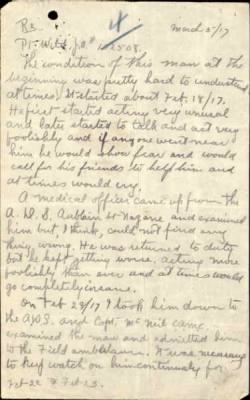 March 5/17
Re
Pt. Wild, J.
The condition of this man at the
beginning was pretty hard to understand
at times. It started about Feb. 18/17.
He first started acting very unusual
and later started to talk and act very
foolishly and if any one went near
him he would show fear and would
call for his friends to help him and
at times would cry.
A medical officer came up from the
A.D.S. Aublain St Nazaire and examined
him but, I think, could not find any
thing wrong. He was returned to duty
but he kept getting worse, acting more
foolishly than ever and at times would
go completely insane.
On Feb 23/17 I took him down to
the A.D.S. and Capt. Mc Neil C.A.M.C.
examined the man and admitted him
to the Field Ambulance. It was necessary
to keep watch on him continually for
Feb 22 & Feb 23.